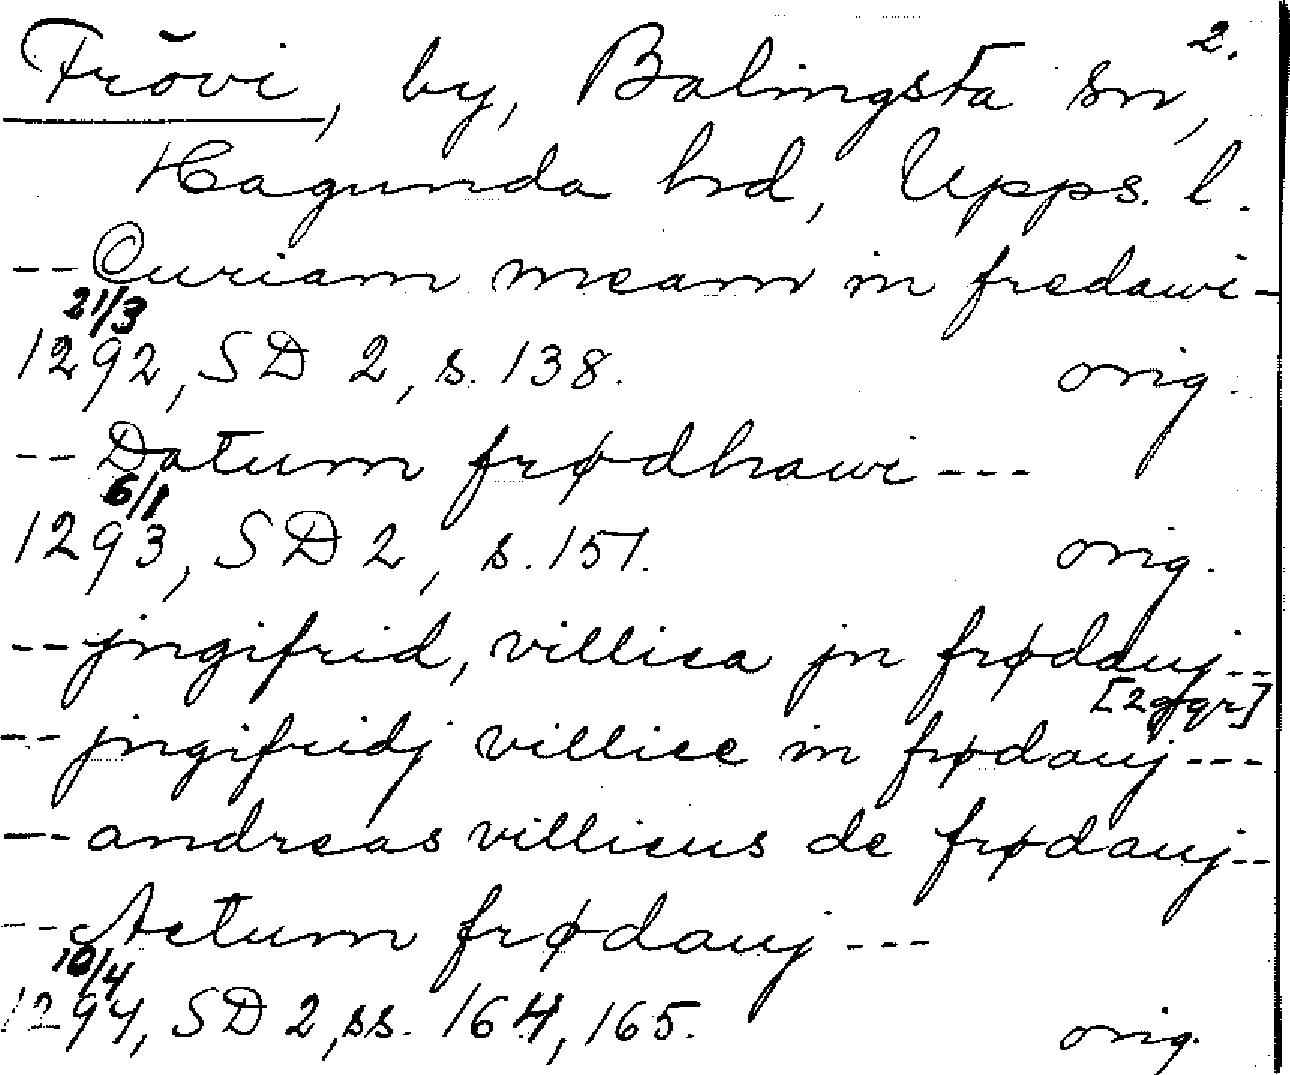 2.
Frövi, by, Balingsta sn,
Hagunda hrd, Upps. l.
-- Curiam meam in fredawi-
21/3
1292, SD 2, s. 138. orig.
-- Datum frødhawi ---
6/1
1293, SD 2, s. 151. orig.
-- jngifrid, villica jn frødauj --
[2 ggr]
-- jngifridj villice in frødauj ---
-- andreas villicus de frødauj --
-- Actum frødauj ---
10/4
1294, SD 2, ss. 164, 165. orig.